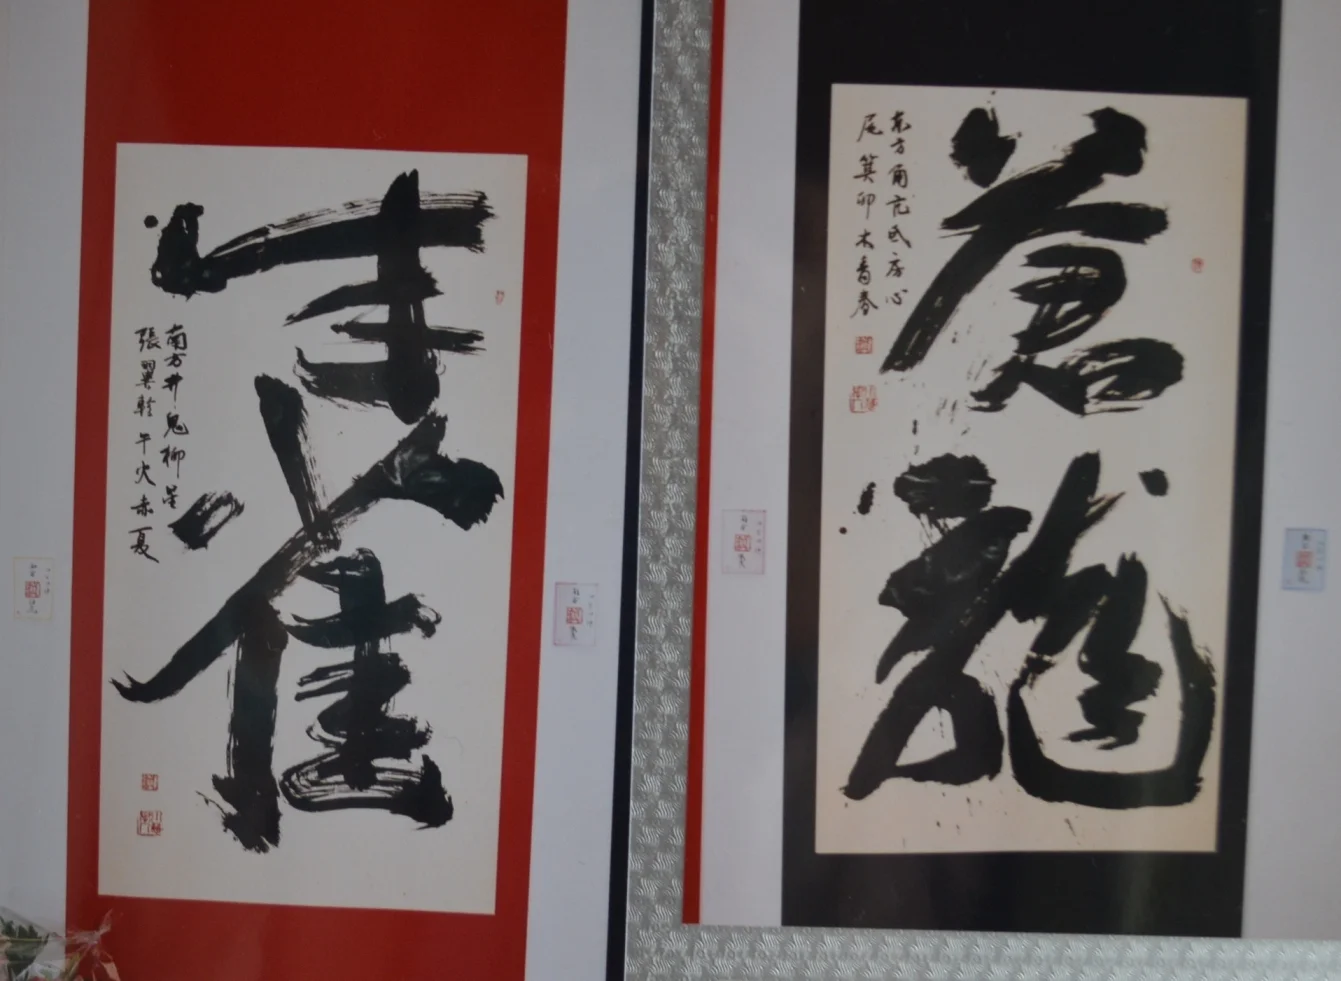 朱雀
南方井鬼柳星
張翼軫午火赤夏
蒼龍
东方角亢氐房心
尾箕卯木青春